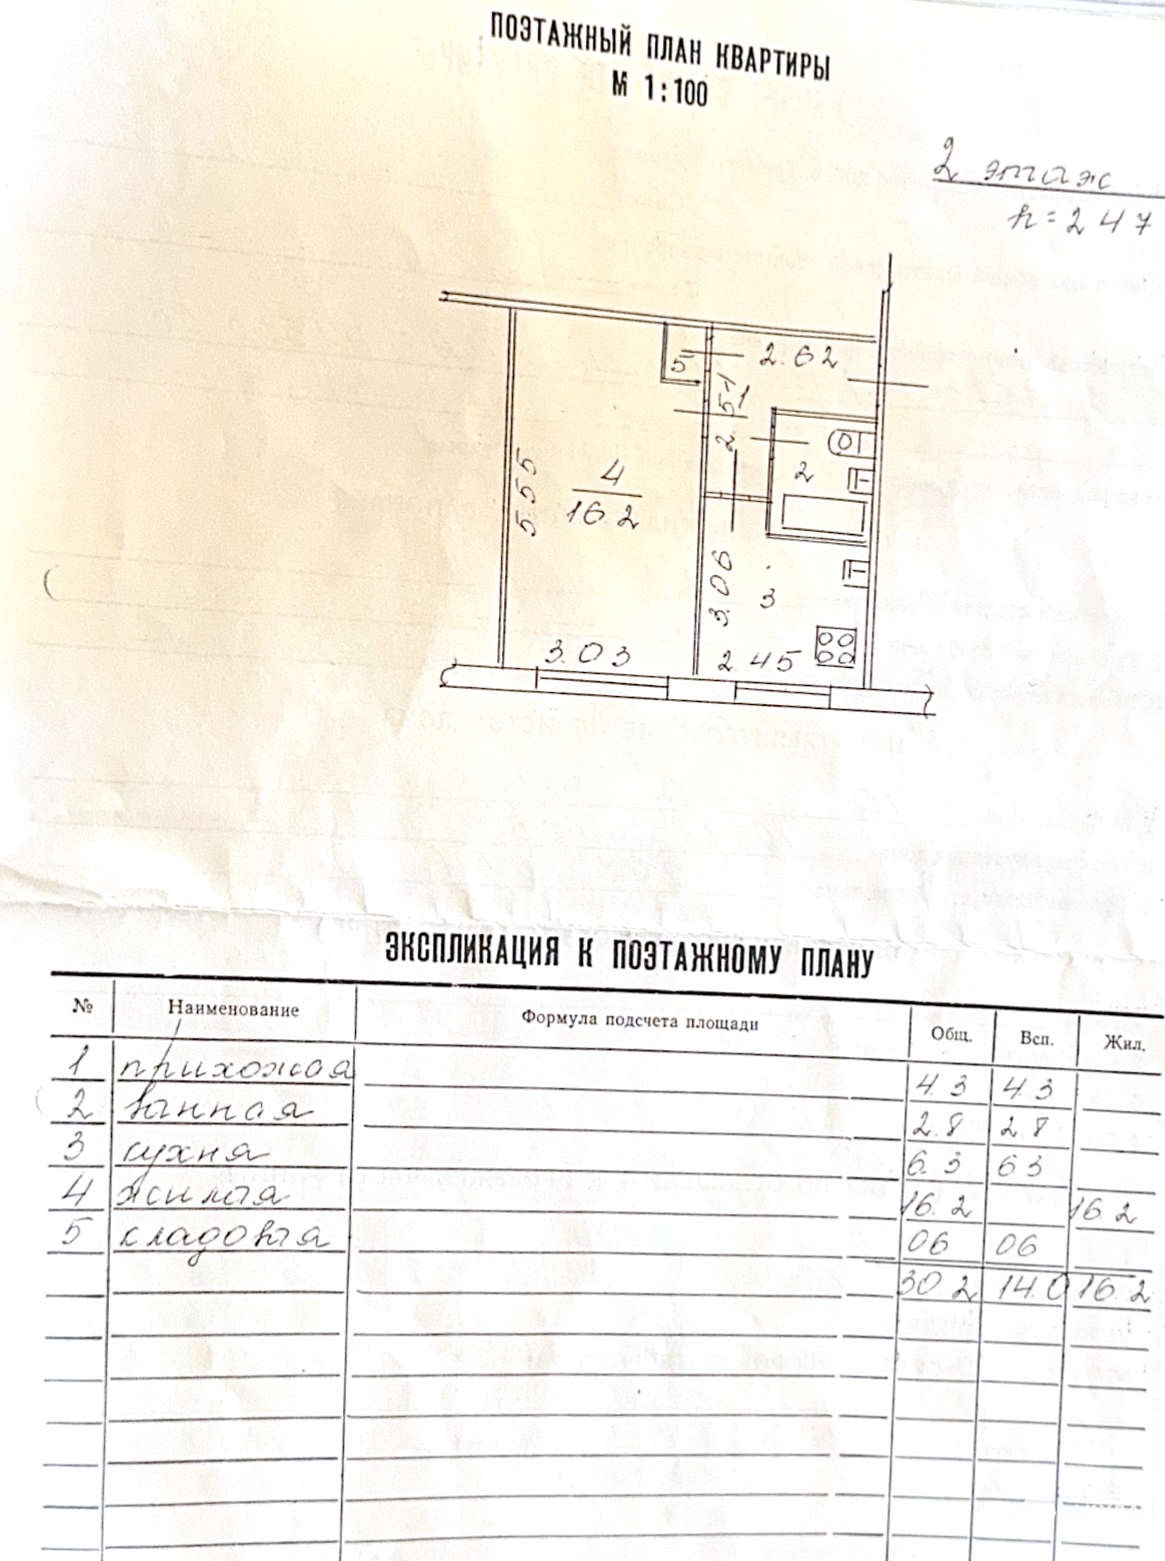 ПОЭТАЖНЫЙ ПЛАН КВАРТИРЫ
М 1:100
2 этаж
h=2 47
5
2.62
2.51
2
4
16.2
5.55
3.06
3
3.03
2.45
ЭКСПЛИКАЦИЯ К ПОЭТАЖНОМУ ПЛАНУ
№ Наименование Формула подсчета площади Общ. Всп. Жил.
1 прихожая 4.3 4.3
2 ванная 2.8 2.8
3 кухня 6.3 63
4 жилая 16.2 16.2
5 кладовая 06 06
30 2 14.0 16.2